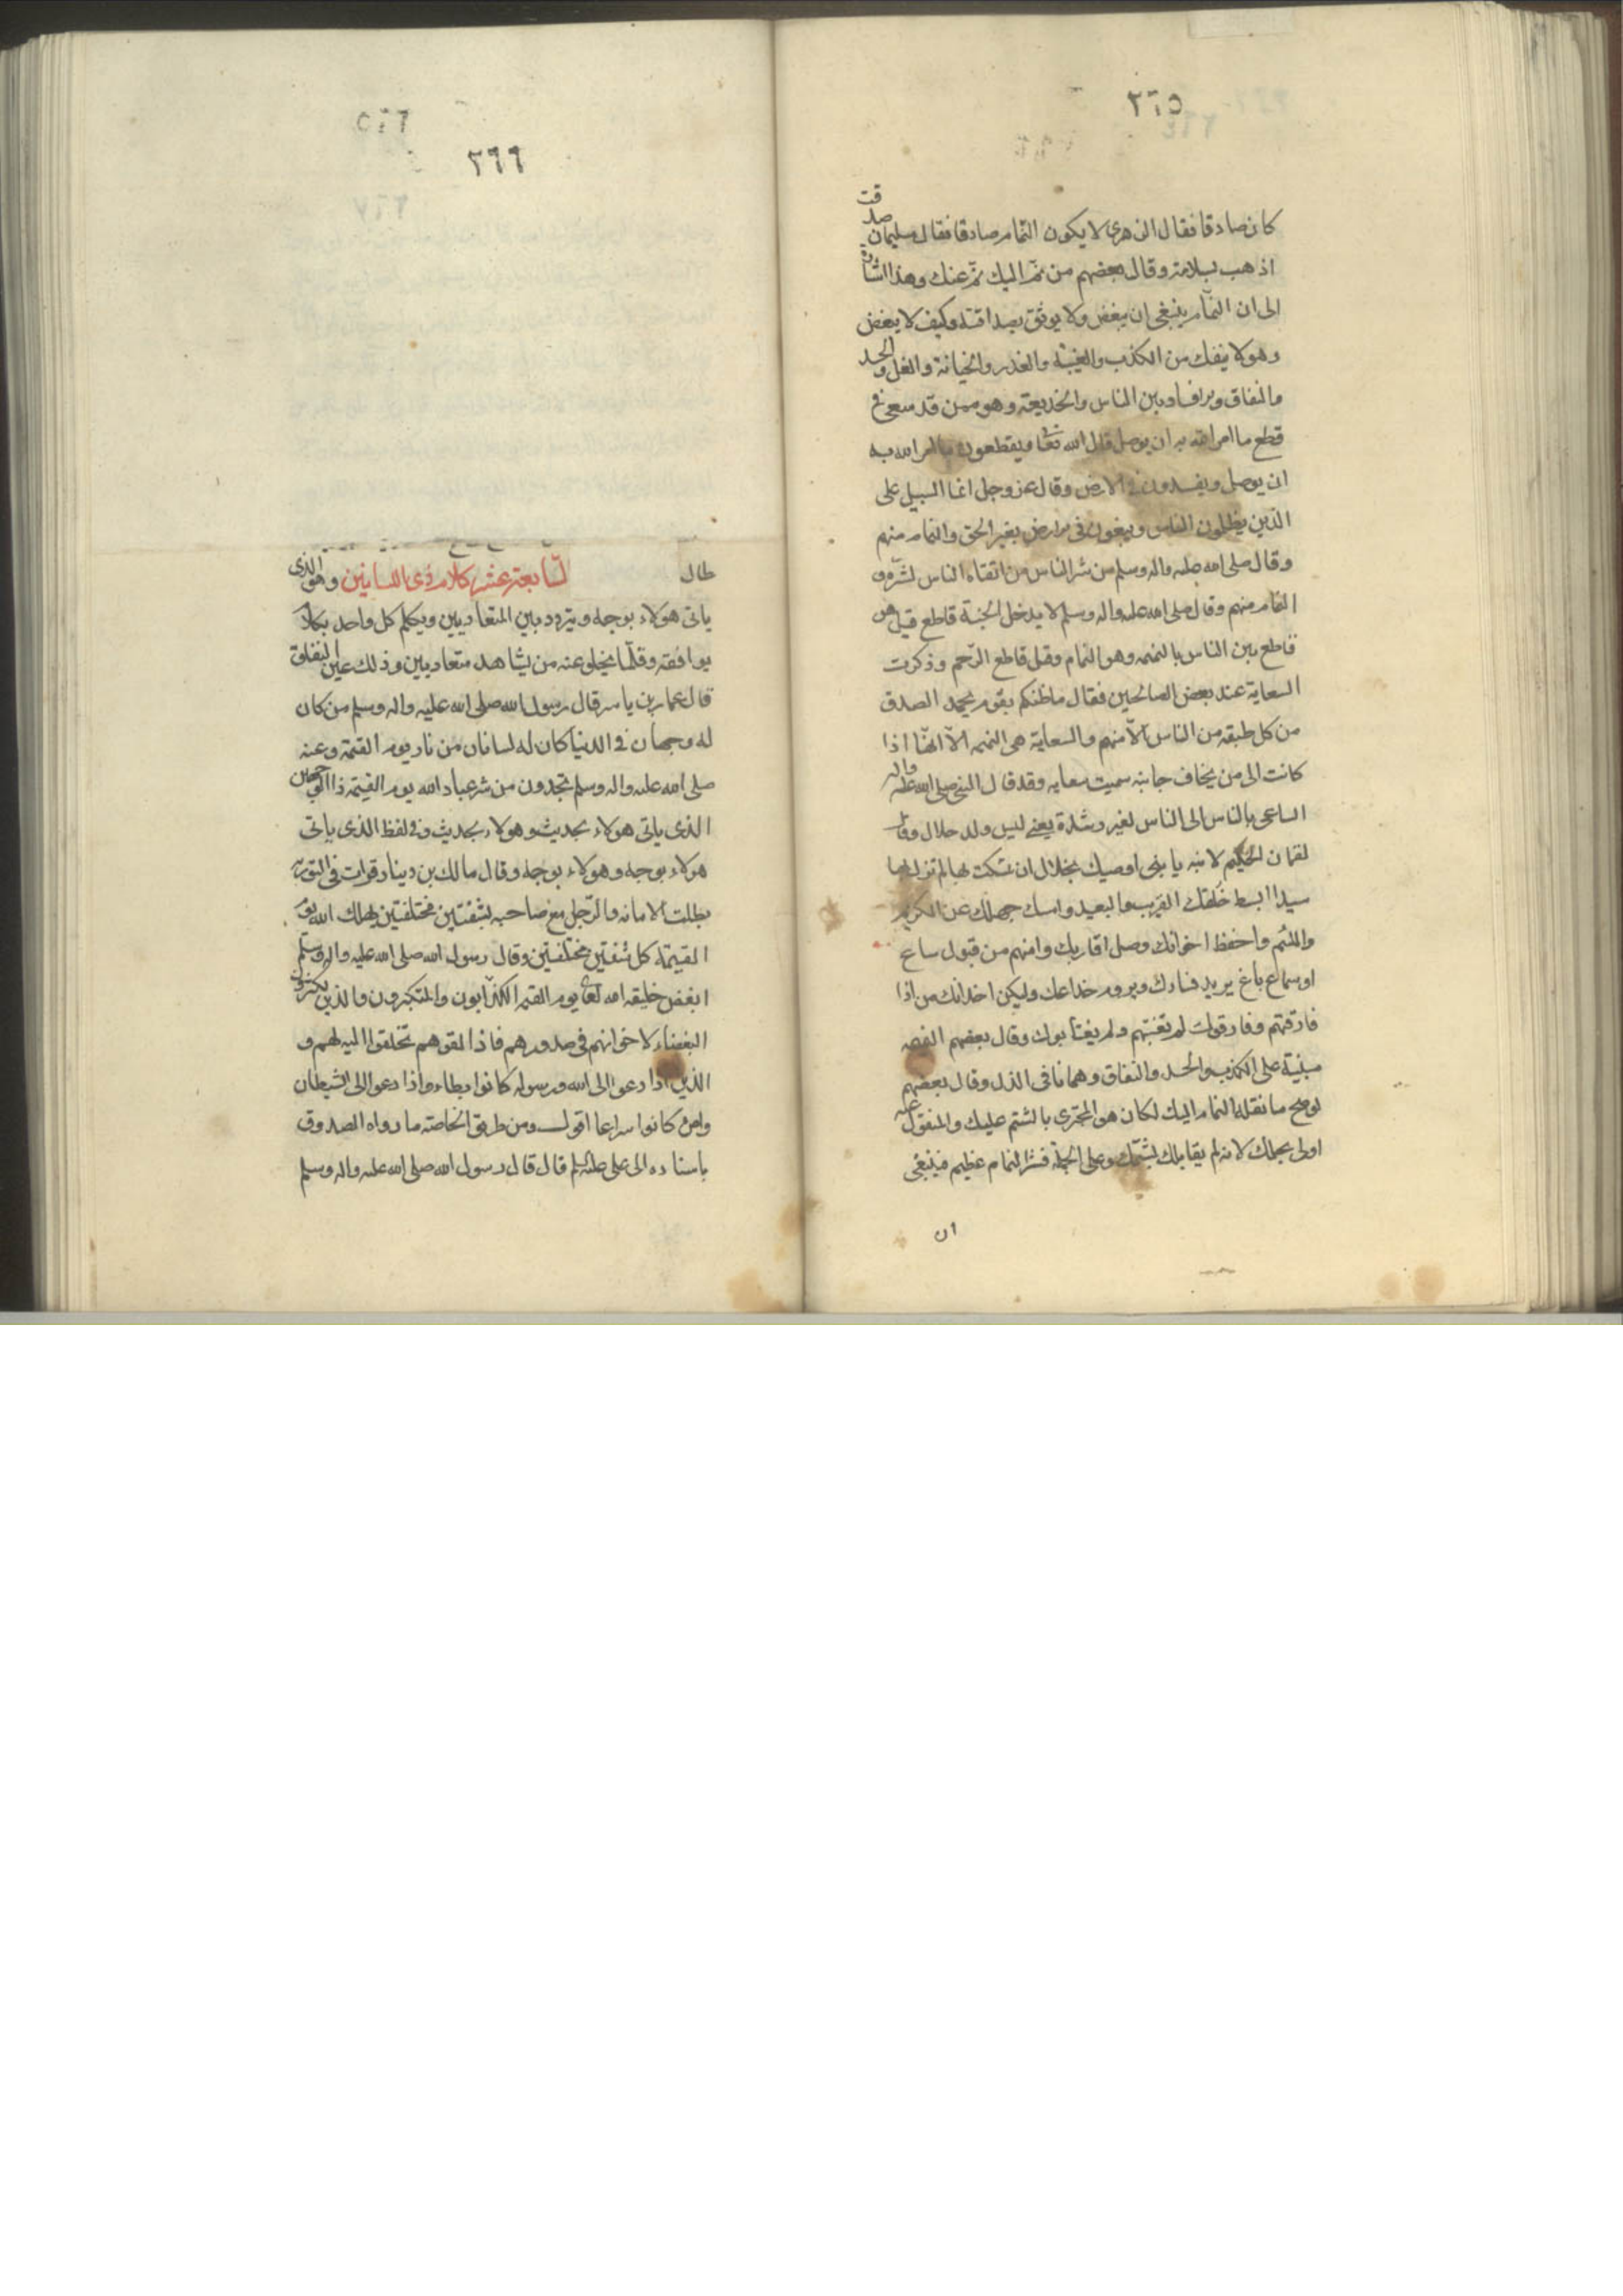 ٣٦٥
كان صادقا فقال الزهري لا يكون النمّام صادقا فقال سليمان صدقت
اذهب بسلامة وقال بعضهم من نمّ اليك نمّ عنك وهذا اشارة
الى ان النمّام ينبغي ان يبغض ولا يوثق بصداقته وكيف لا يبغض
وهو لا ينفك من الكذب والغيبة والغدر والخيانة والغل والحسد
والنفاق والافساد بين الناس والخديعة وهو ممن قد سعى في
قطع ما امر الله به ان يوصل قال الله تعا ويقطعون ما امر الله به
ان يوصل ويفسدون في الارض وقال عز وجل انما السبيل على
الذين يظلمون الناس ويبغون في الارض بغير الحق والنمام منهم
وقال صلى الله عليه واله وسلم من شر الناس من اتقاه الناس لشرّه و
النمام منهم وقال صلى الله عليه واله وسلم لا يدخل الجنة قاطع قيل هو
قاطع بين الناس بالنميمه وهو النمام وقيل قاطع الرّحم وذكرت
السعاية عند بعض الصالحين فقال ما ظنكم بقوم يحمد الصدق
من كل طبقه من الناس الّا منهم والسعاية هي النميمه الّا انها اذا
كانت الى من يخاف جانبه سميت سعايه وقد قال النبي صلى الله عليه واله
الساعي بالناس الى الناس لغير رشدة يعني ليس ولد حلال وقال
لقمان الحكيم لابنه يا بني اوصيك بخلال ان تمسكت بها لم تزل
سيدا ابسط خلقك القريب والبعيد وامسك جهلك عن الكريم
واللئيم واحفظ اخوانك وصل اقاربك وامنهم من قبول ساع
او سماع باغ يريد فسادك ويروم خداعك وليكن اخدانك من اذا
فارقتهم وفارقوك لم تغتبهم ولم يغتابوك وقال بعضهم النميمه
مبنية على الكذب والحسد والنفاق وهي اثافي الذل وقال بعضهم
لو صح ما نقله النمام اليك لكان هو المجتري بالشتم عليك والمنقول عنه
اولى بحملك لانه لم يقابلك بشتمك وعلى الجملة فشر النمام عظيم فينبغي
ان
٣٦٦
طال السّابعة عشر كلام ذي اللسانين وهو الذي
ياتي هولاء بوجه ويتردد بين المتعاديين ويكلم كل واحد بكلام
يوافقه وقلّما يخلو عنه من يشاهد متعاديين وذلك عين النفاق
قال عمار بن ياسر قال رسول الله صلى الله عليه واله وسلم من كان
له وجهان في الدنيا كان له لسانان من نار يوم القيمة وعنه
صلى الله عليه واله وسلم تجدون من شر عباد الله يوم القيمة ذا الوجهين
الذي ياتي هولاء بحديث وهولاء بحديث وفي لفظ الذي ياتي
هولاء بوجه وهولاء بوجه وقال مالك بن دينار قرات في التورية
بطلت الامانه والرّجل مع صاحبه بشفتين مختلفتين يهلك الله يوم
القيمة كل شفتين مختلفتين وقال رسول الله صلى الله عليه واله وسلم
ابغض خليقه الله تعا يوم القيمه الكذّابون والمتكبرون والذين يكنزون
البغضاء لاخوانهم في صدورهم فاذا لقوهم تخلقوا اليه لهم و
الذين اذا دعوا الى الله ورسوله كانوا بطاء واذا دعوا الى الشيطان
وامره كانوا سراعا اقول ومن طريق الخاصة ما رواه الصدوق
باسناده الى علي عليه السلم قال قال رسول الله صلى الله عليه واله وسلم